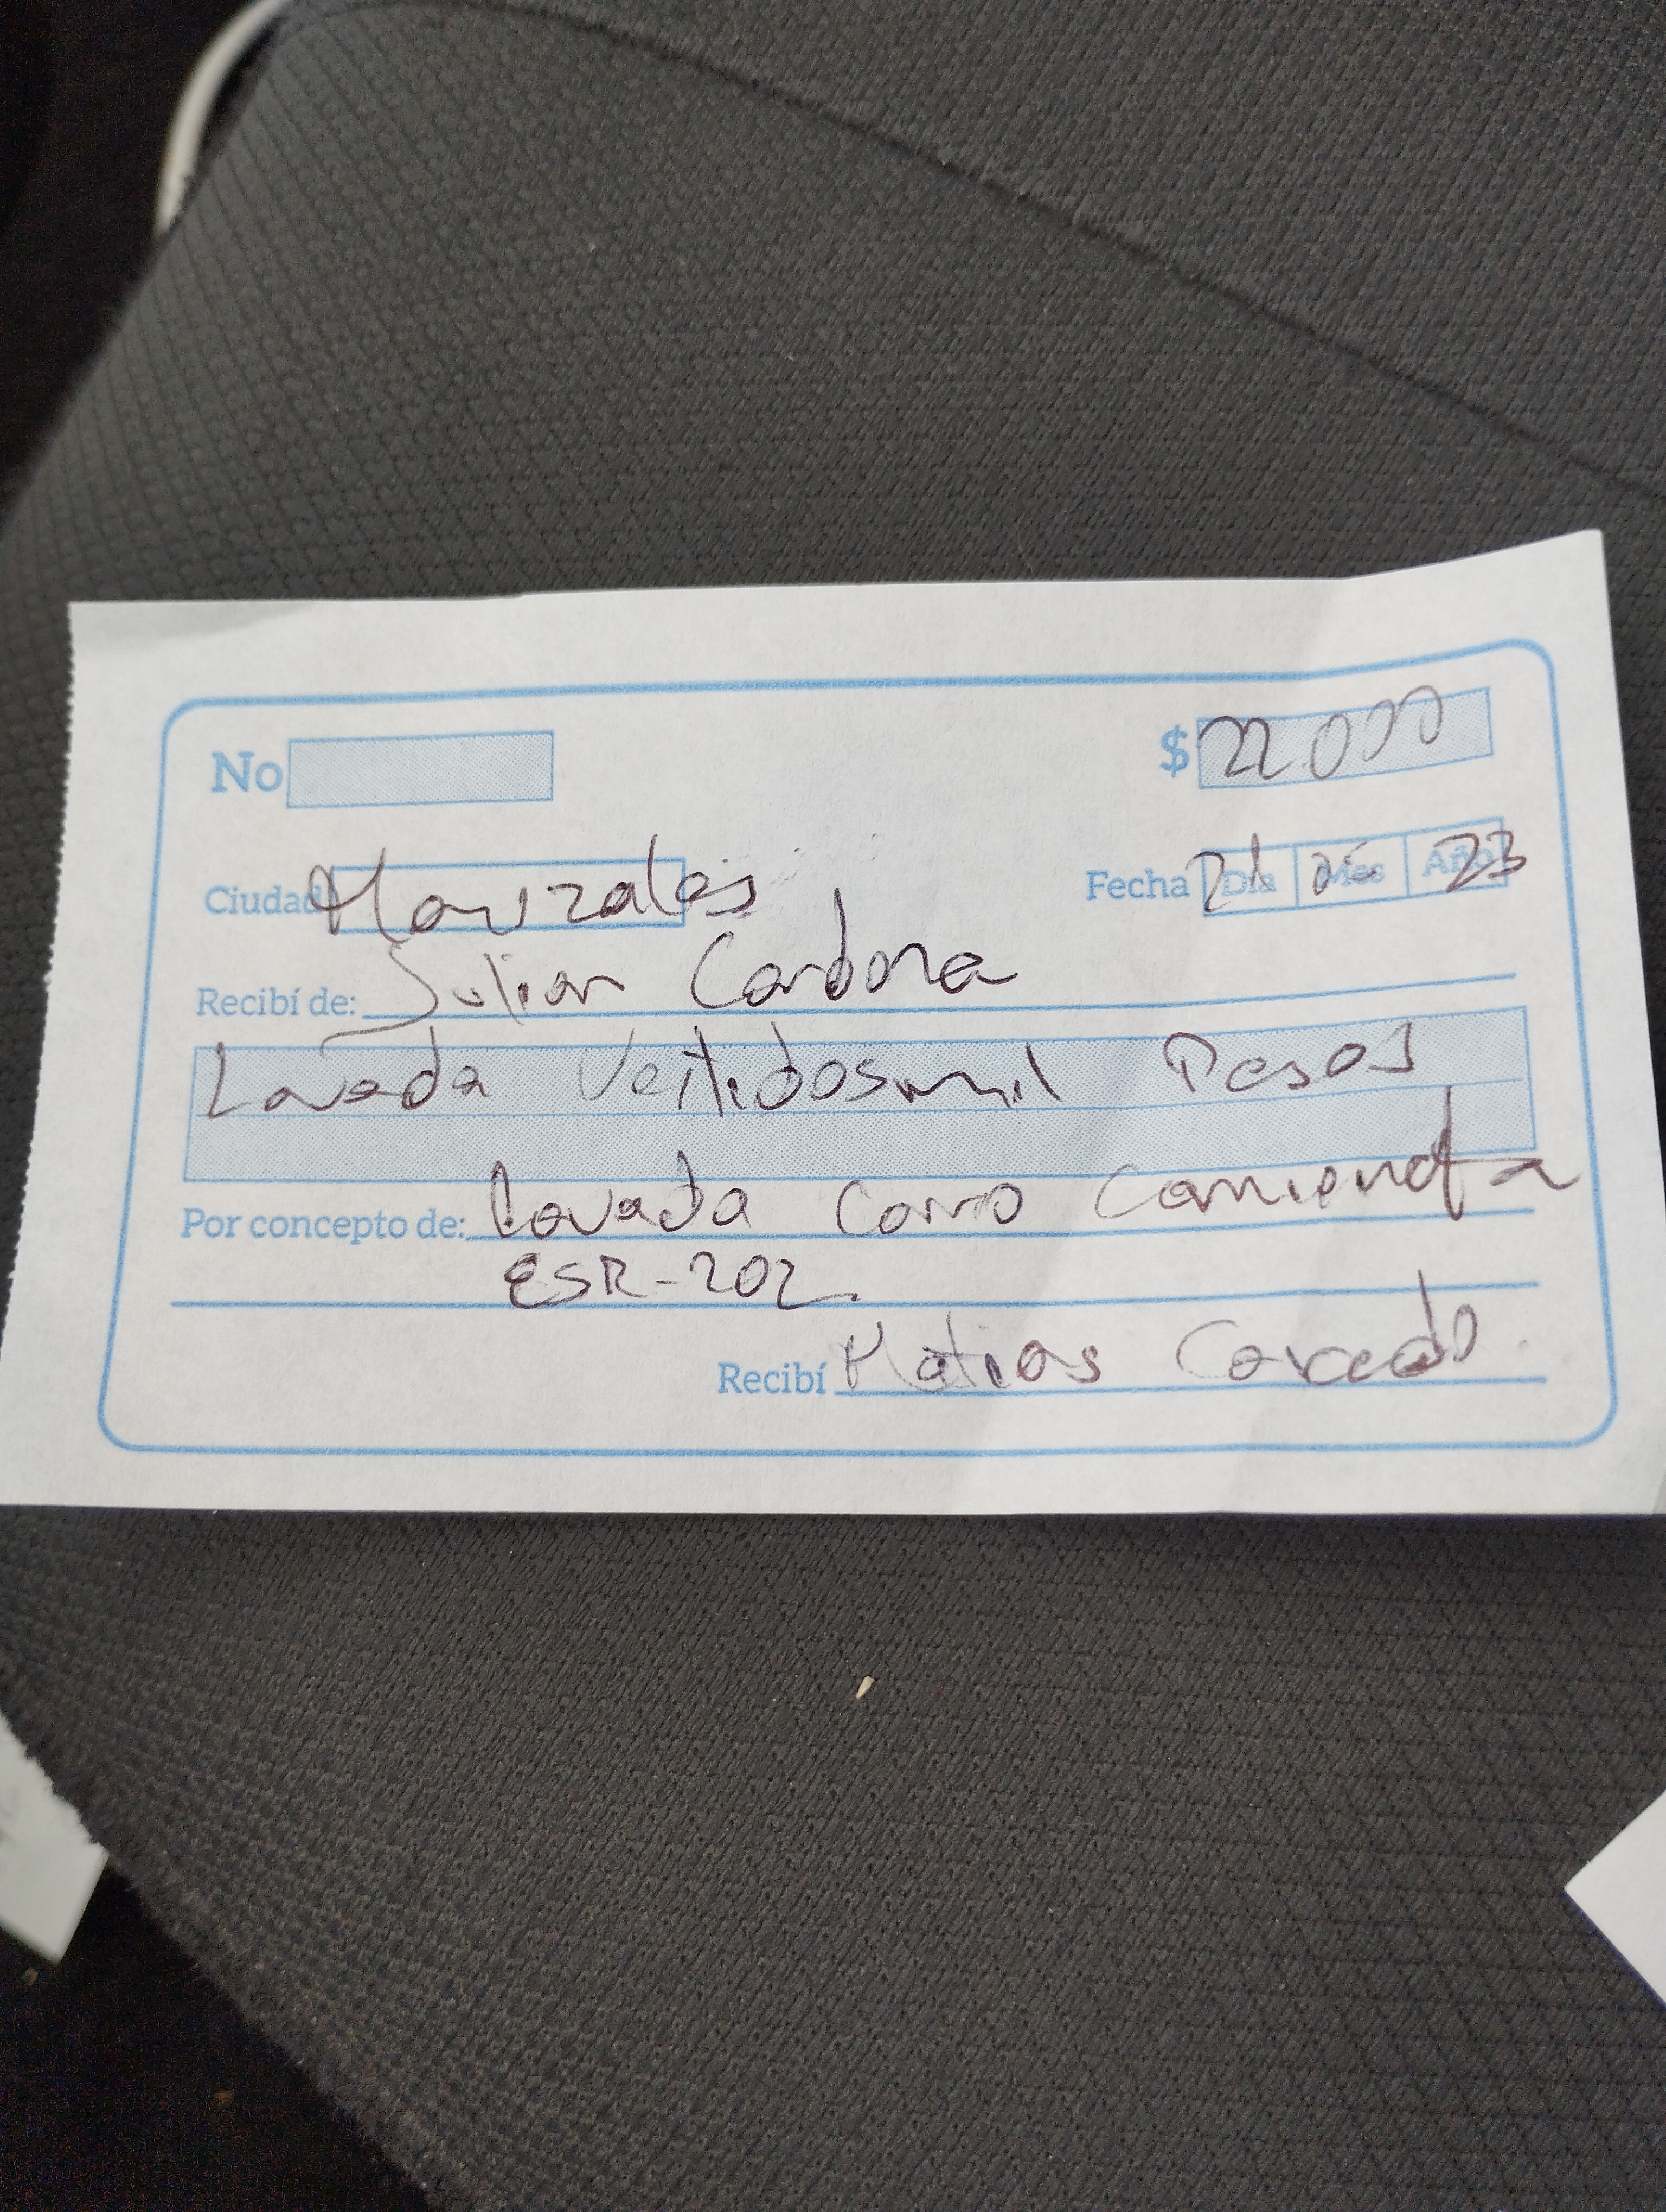 No
$ 22.000
Ciudad Manizales
Fecha Día Mes Año 23
Recibí de: Julian Cardona
Lavada Veitidosmil Pesos
Por concepto de: Lavada Carro Camioneta
ESR-202.
Recibí Matias